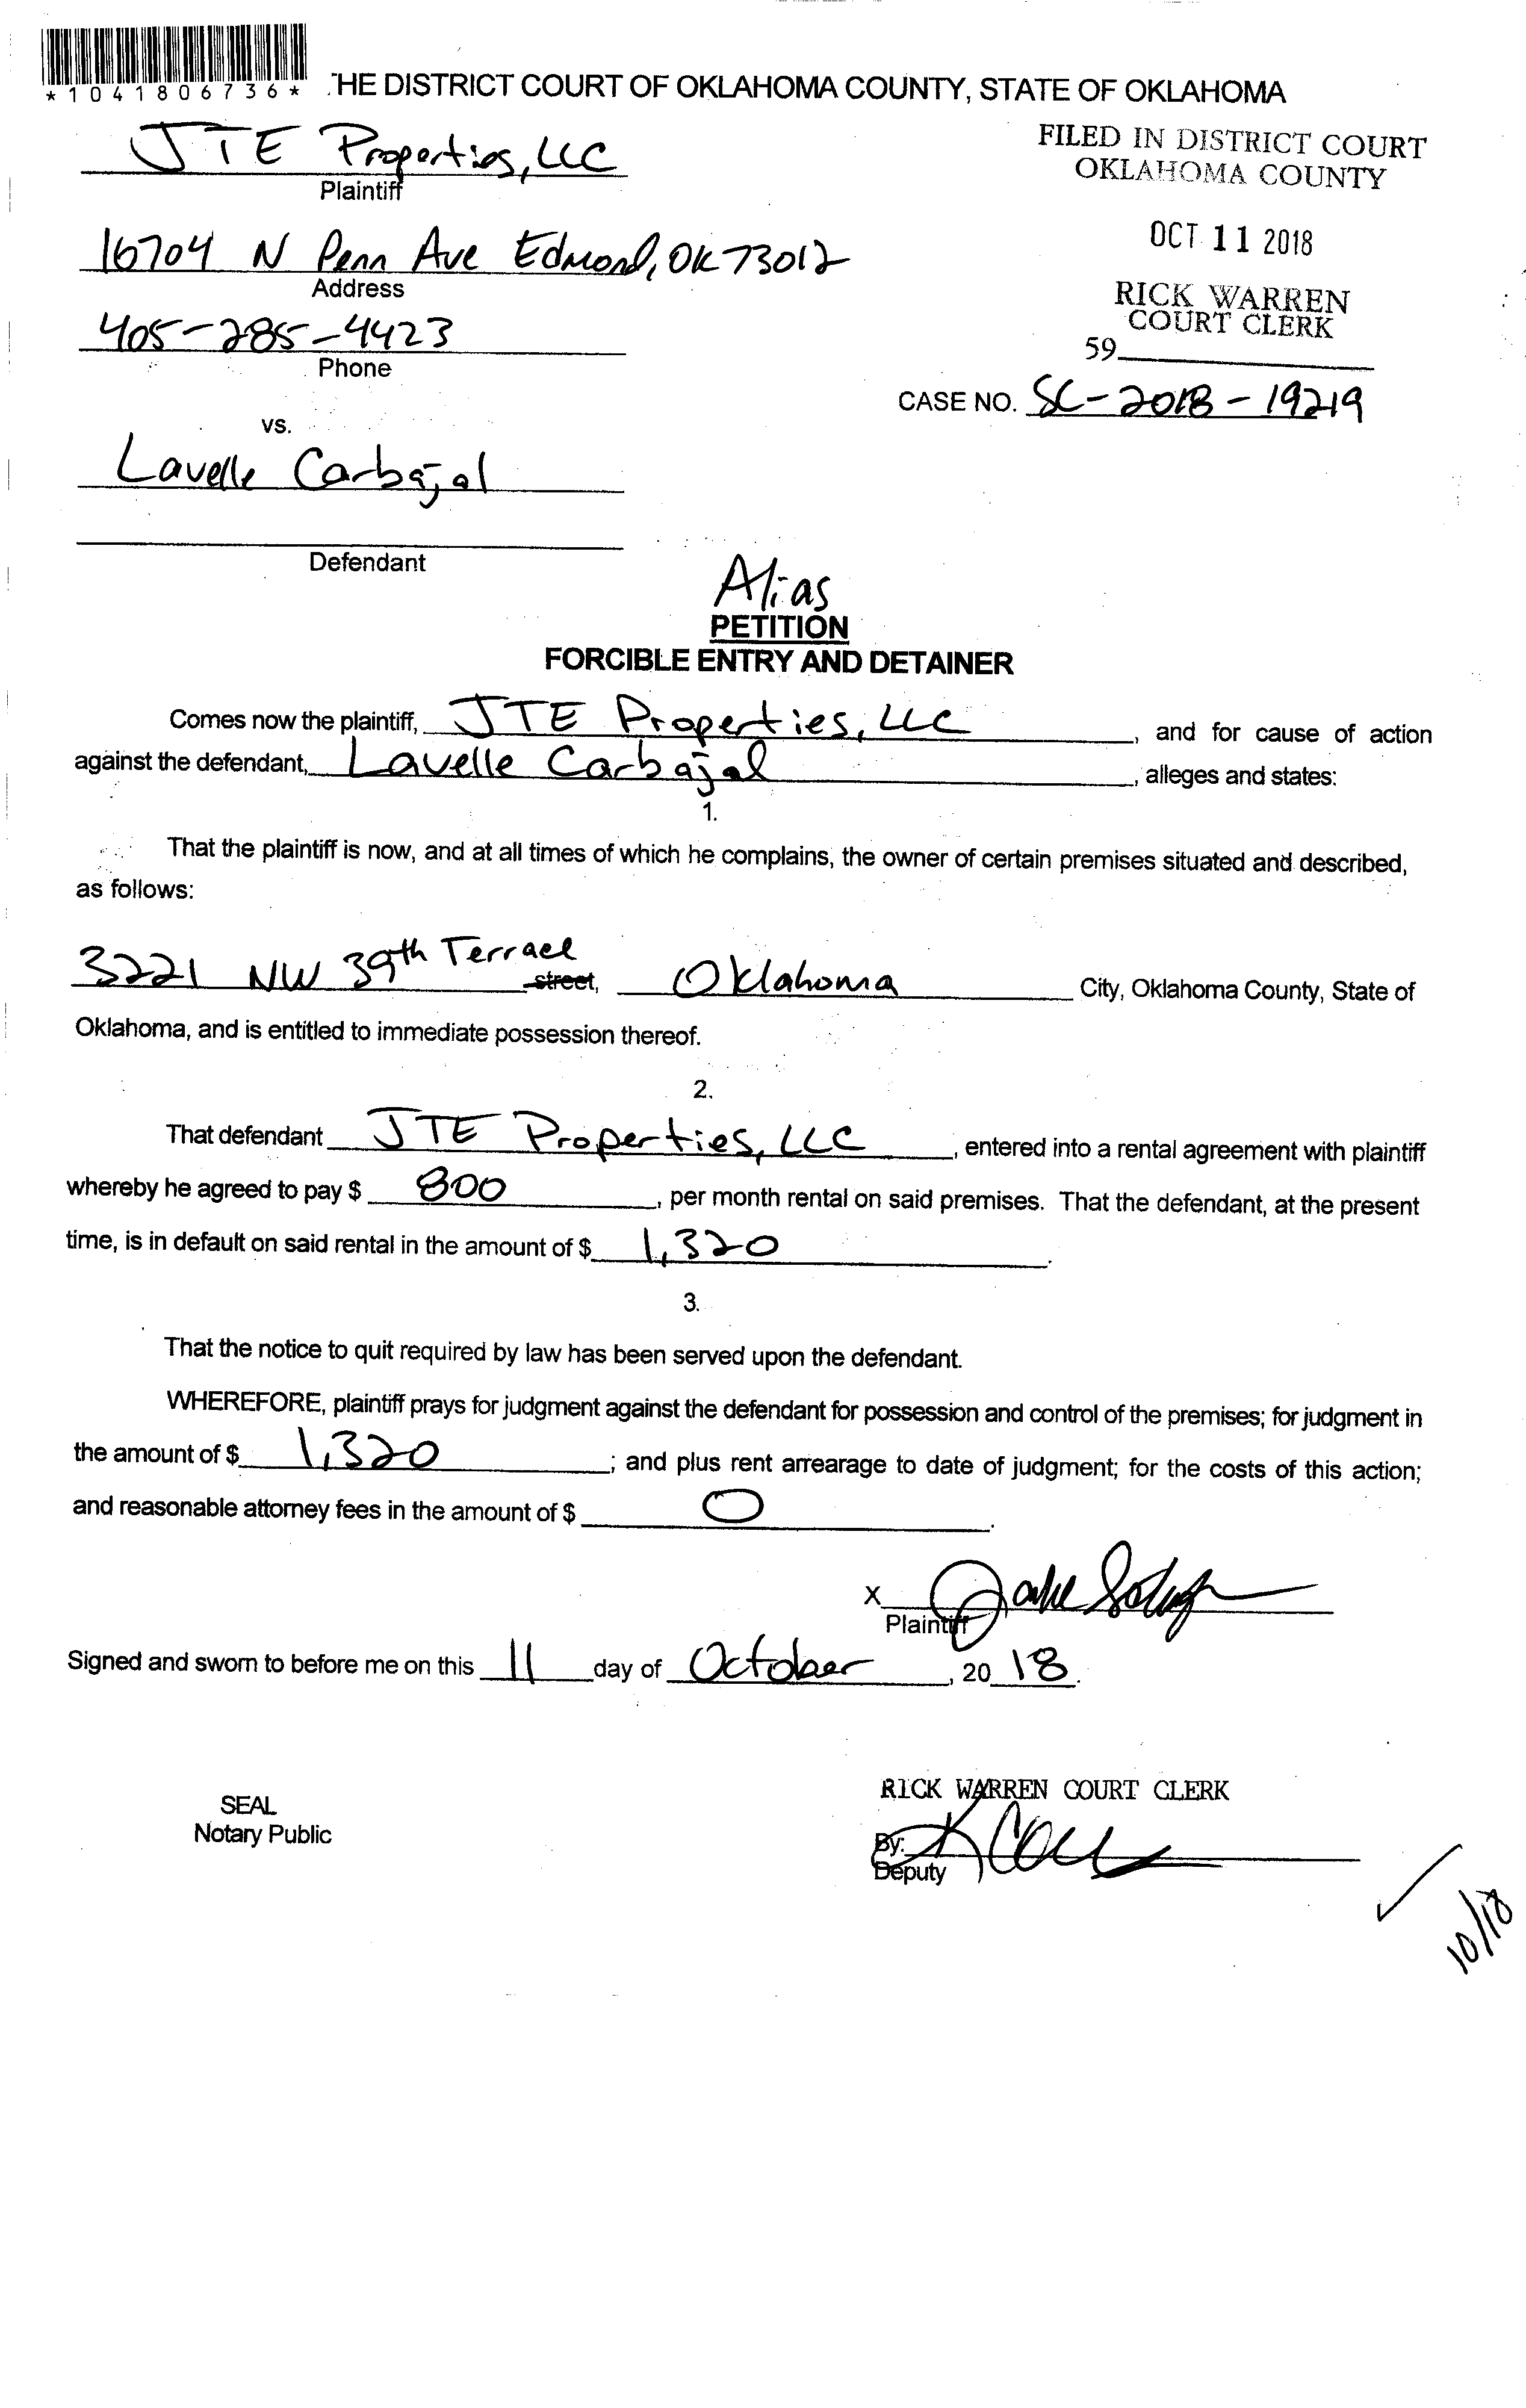 *1041806736*
THE DISTRICT COURT OF OKLAHOMA COUNTY, STATE OF OKLAHOMA
JTE Properties, LLC
Plaintiff
FILED IN DISTRICT COURT
OKLAHOMA COUNTY
16704 N Penn Ave Edmond, OK 73012
Address
OCT 11 2018
405-285-4423
Phone
RICK WARREN
COURT CLERK
59
CASE NO. SC-2018-19219
vs.
Lavelle Carbajal
Defendant
Alias
PETITION
FORCIBLE ENTRY AND DETAINER
Comes now the plaintiff, JTE Properties, LLC, and for cause of action
against the defendant, Lavelle Carbajal, alleges and states:
1.
That the plaintiff is now, and at all times of which he complains, the owner of certain premises situated and described,
as follows:
3221 NW 39th Terrace street, Oklahoma City, Oklahoma County, State of
Oklahoma, and is entitled to immediate possession thereof.
2.
That defendant JTE Properties, LLC, entered into a rental agreement with plaintiff
whereby he agreed to pay $ 800, per month rental on said premises. That the defendant, at the present
time, is in default on said rental in the amount of $ 1,320.
3.
That the notice to quit required by law has been served upon the defendant.
WHEREFORE, plaintiff prays for judgment against the defendant for possession and control of the premises; for judgment in
the amount of $ 1,320; and plus rent arrearage to date of judgment; for the costs of this action;
and reasonable attorney fees in the amount of $ 0.
X
Plaintiff
Signed and sworn to before me on this 11 day of October, 20 18.
SEAL
Notary Public
RICK WARREN COURT CLERK
By:
Deputy
10/18